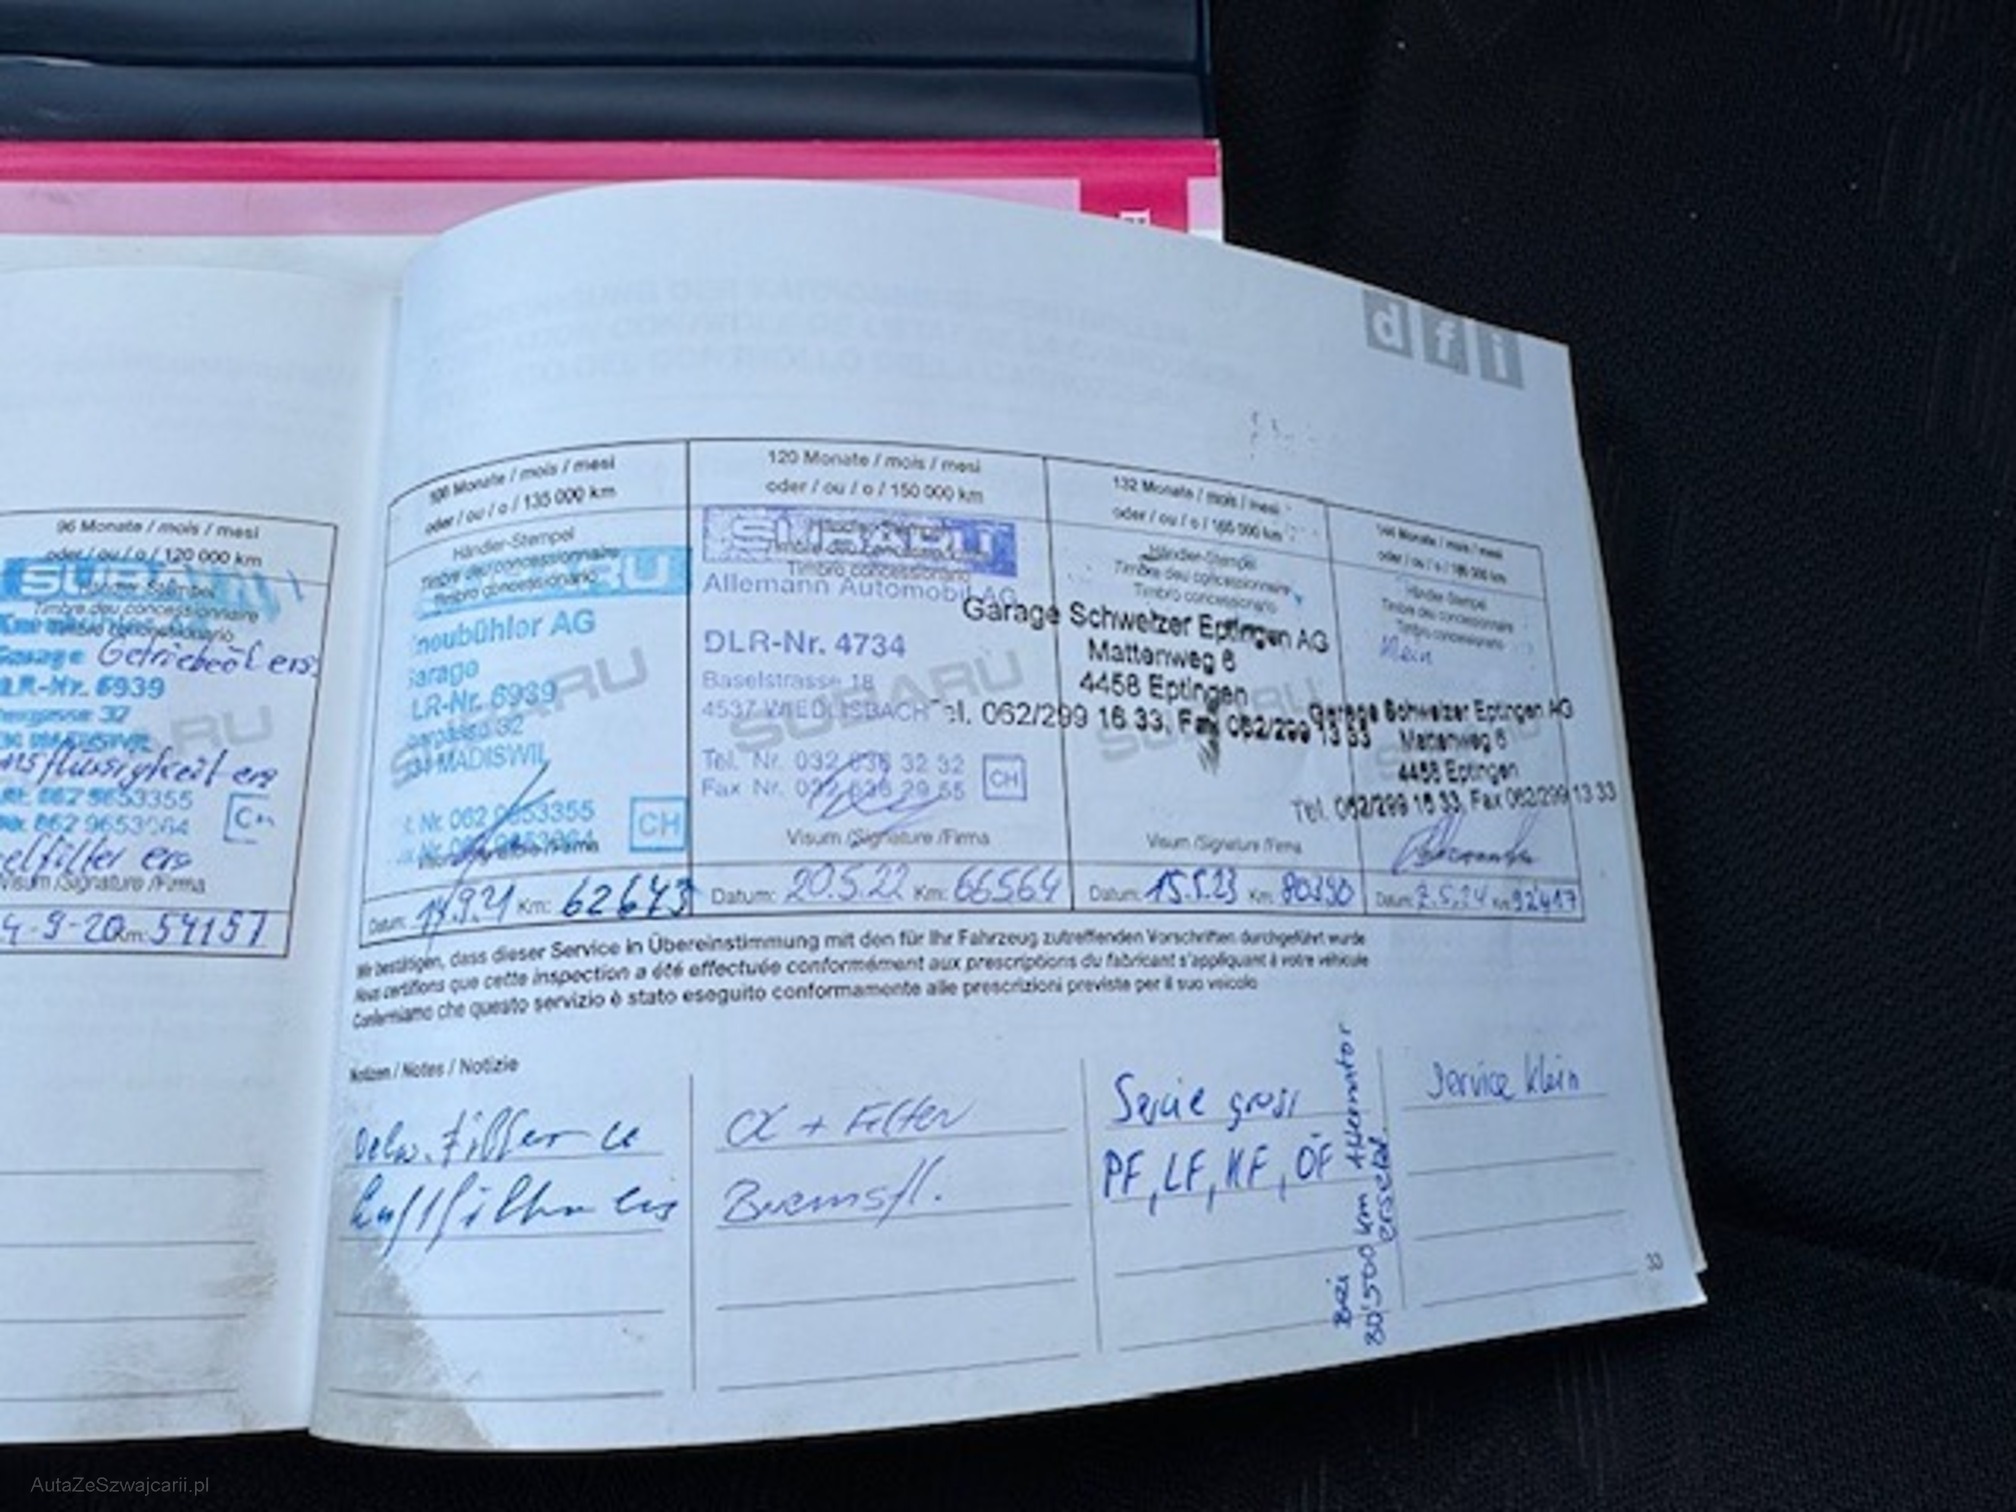 d f i
96 Monate / mois / mesi
oder / ou / o / 120 000 km
SUBARU
Händler-Stempel
Timbre deu concessionnaire
Timbro concessionario
Garage Getriebeöl ers
DLR-Nr. 6939
062 9653355
CH
Visum /Signature /Firma
4-9-20 Km: 54151
Monate / mois / mesi
oder / ou / o / 135 000 km
Händler-Stempel
Timbre deu concessionnaire
Timbro concessionario
SUBARU
neubühler AG
Garage
DLR-Nr. 6939
MADISWIL
Nr. 062 9653355
CH
Datum: 14.9.21 Km: 62643
120 Monate / mois / mesi
oder / ou / o / 150 000 km
SUBARU
Händler-Stempel
Timbre deu concessionnaire
Timbro concessionario
Allemann Automobil AG
DLR-Nr. 4734
Baselstrasse 18
4537 WIEDLISBACH
Tel. Nr. 032 636 32 32
Fax Nr. 032 636 29 55
CH
Visum /Signature /Firma
Datum: 20.5.22 Km: 66564
132 Monate / mois / mesi
oder / ou / o / 165 000 km
Händler-Stempel
Timbre deu concessionnaire
Timbro concessionario
Garage Schweizer Eptingen AG
Mattenweg 6
4458 Eptingen
Tel. 062/299 16 33, Fax 062/299 13 33
Visum /Signature /Firma
Datum: 15.5.23 Km: 80390
144 Monate / mois / mesi
oder / ou / o / 180 000 km
Händler-Stempel
Timbre deu concessionnaire
Timbro concessionario
Garage Schweizer Eptingen AG
Mattenweg 6
4458 Eptingen
Tel. 062/299 16 33, Fax 062/299 13 33
Datum: 2.5.24 Km: 92417
Wir bestätigen, dass dieser Service in Übereinstimmung mit den für Ihr Fahrzeug zutreffenden Vorschriften durchgeführt wurde
Nous certifions que cette inspection a été effectuée conformément aux prescriptions du fabricant s'appliquant à votre véhicule
Confermiamo che questo servizio è stato eseguito conformamente alle prescrizioni previste per il suo veicolo
Notizen / Notes / Notizie
Luftfilter
Öl + Filter
Bremsfl.
Servie gross
PF, LF, KF, ÖF
Bei 80'500 km Alternator ersetzt.
Service klein
33
AutaZeSzwajcarii.pl